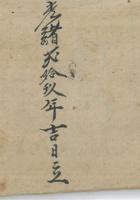 光緒弍拾玖年吉日立